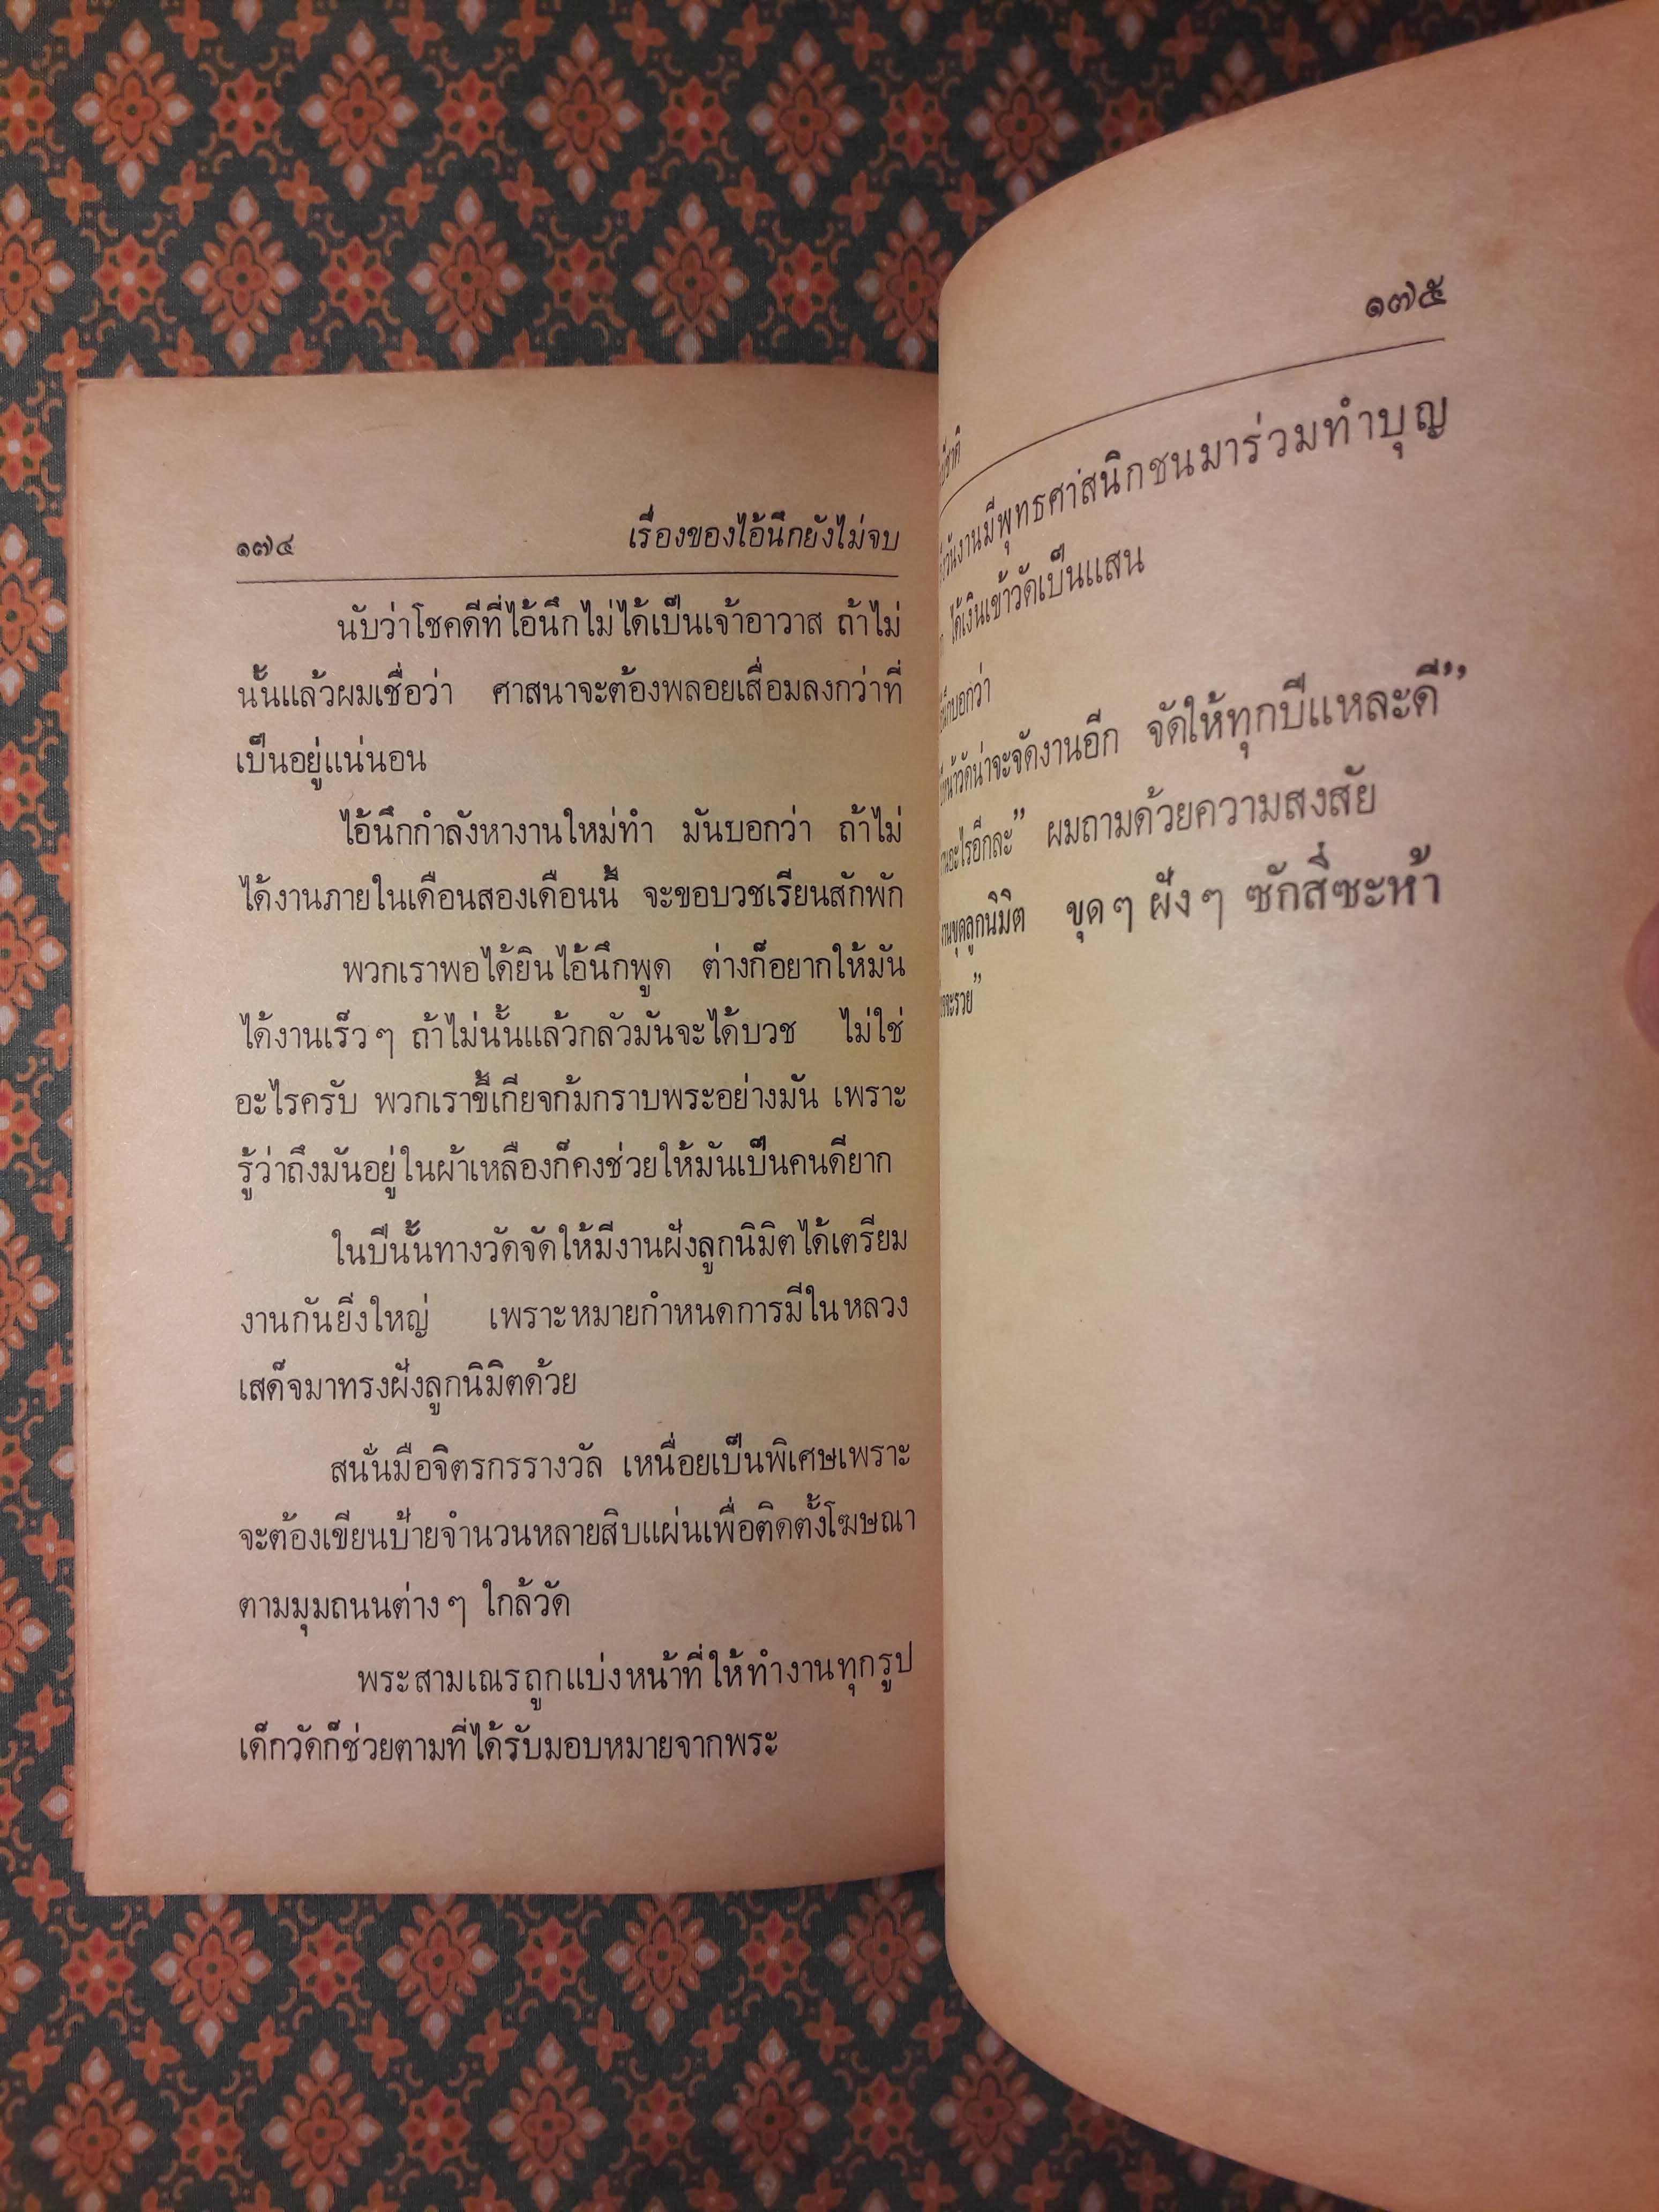 ๑๗๔ เรื่องของไอ้นึกยังไม่จบ
นับว่าโชคดีที่ไอ้นึกไม่ได้เป็นเจ้าอาวาส ถ้าไม่
นั้นแล้วผมเชื่อว่า ศาสนาจะต้องพลอยเสื่อมลงกว่าที่
เป็นอยู่แน่นอน
ไอ้นึกกำลังหางานใหม่ทำ มันบอกว่า ถ้าไม่
ได้งานภายในเดือนสองเดือนนี้ จะขอบวชเรียนสักพัก
พวกเราพอได้ยินไอ้นึกพูด ต่างก็อยากให้มัน
ได้งานเร็วๆ ถ้าไม่นั้นแล้วกลัวมันจะได้บวช ไม่ใช่
อะไรครับ พวกเราขี้เกียจก้มกราบพระอย่างมัน เพราะ
รู้ว่าถึงมันอยู่ในผ้าเหลืองก็คงช่วยให้มันเป็นคนดียาก
ในปีนั้นทางวัดจัดให้มีงานฝังลูกนิมิตได้เตรียม
งานกันยิ่งใหญ่ เพราะหมายกำหนดการมีในหลวง
เสด็จมาทรงฝังลูกนิมิตด้วย
สนั่นมือจิตรกรรางวัล เหนื่อยเป็นพิเศษเพราะ
จะต้องเขียนป้ายจำนวนหลายสิบแผ่นเพื่อติดตั้งโฆษณา
ตามมุมถนนต่างๆ ใกล้วัด
พระสามเณรถูกแบ่งหน้าที่ให้ทำงานทุกรูป
เด็กวัดก็ช่วยตามที่ได้รับมอบหมายจากพระ
๑๗๕
วันงานมีพุทธศาสนิกชนมาร่วมทำบุญ
ได้เงินเข้าวัดเป็นแสน
บอกว่า
หน้าวัดน่าจะจัดงานอีก จัดให้ทุกปีแหละดี”
อะไรอีกละ” ผมถามด้วยความสงสัย
ขุดลูกนิมิต ขุดๆ ฝังๆ ซักสี่ซะห้า
รวย”